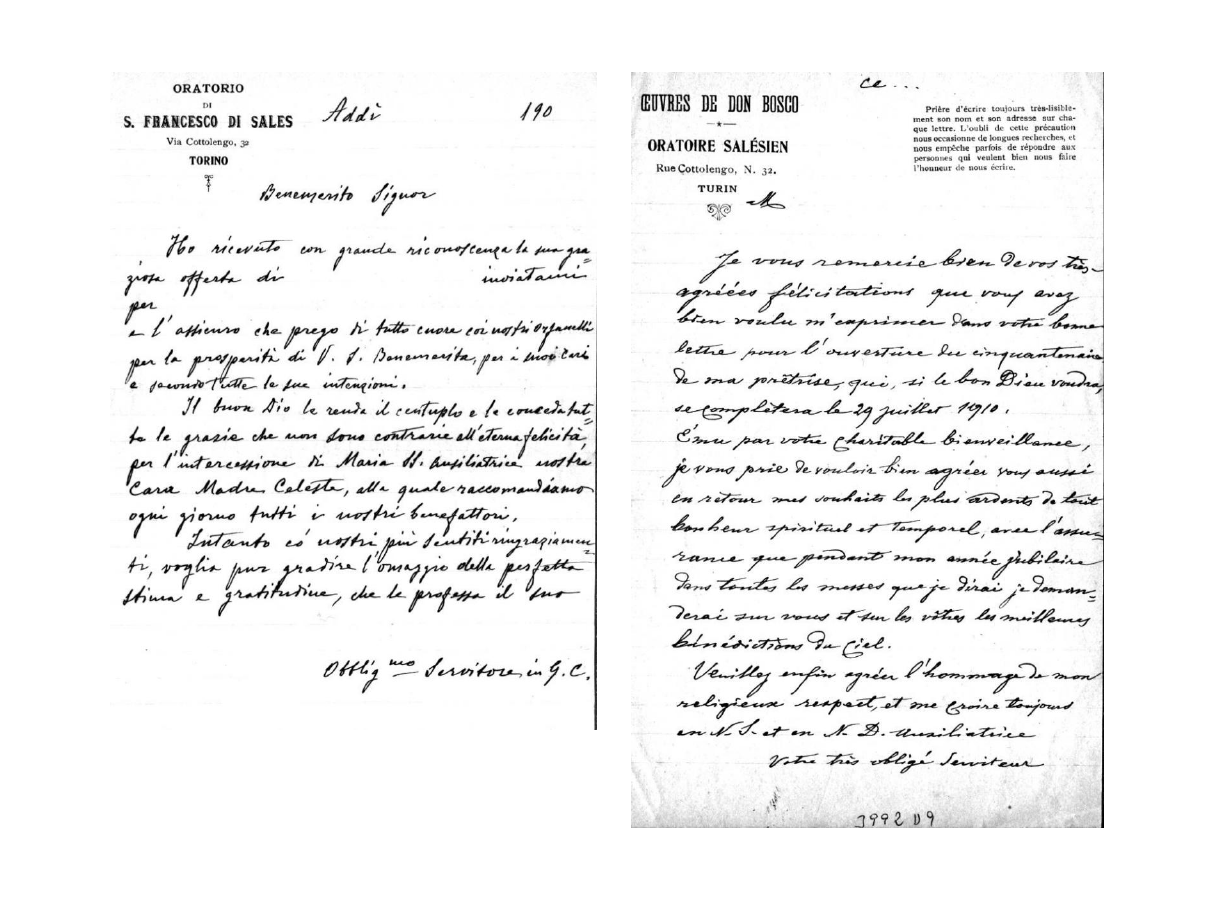 ORATORIO
DI
S. FRANCESCO DI SALES
Via Cottolengo, 32
TORINO
Addì 190
Benemerito Signor
Ho ricevuto con grande riconoscenza la sua gra=
ziosa offerta di inviatami
per
e l'assicuro che prego di tutto cuore coi nostri Orfanelli
per la prosperità di V. S. Benemerita, per i suoi cari
e secondo tutte le sue intenzioni.
Il buon Dio le renda il centuplo e le conceda tut=
te le grazie che non sono contrarie all'eterna felicità,
per l'intercessione di Maria SS. Ausiliatrice nostra
Cara Madre Celeste, alla quale raccomandiamo
ogni giorno tutti i nostri benefattori.
Intanto co' nostri più sentiti ringraziamen=
ti, voglia pur gradire l'omaggio della perfetta
stima e gratitudine, che le professa il suo
Obblig mo Servitore in G. C.
ce...
ŒUVRES DE DON BOSCO
ORATOIRE SALÉSIEN
Rue Cottolengo, N. 32.
TURIN
Prière d'écrire toujours très-lisible-
ment son nom et son adresse sur cha-
que lettre. L'oubli de cette précaution
nous occasionne de longues recherches, et
nous empêche parfois de répondre aux
personnes qui veulent bien nous faire
l'honneur de nous écrire.
M
Je vous remercie bien de vos très-
agréées félicitations que vous avez
bien voulu m'exprimer dans votre bonne
lettre pour l'ouverture du cinquantenaire
de ma prêtrise, qui, si le bon Dieu voudra,
se complètera le 29 juillet 1910.
Ému par votre charitable bienveillance,
je vous prie de vouloir bien agréer vous aussi
en retour mes souhaits les plus ardents de tout
bonheur spirituel et temporel, avec l'assu=
rance que pendant mon année jubilaire
dans toutes les messes que je dirai je deman=
derai sur vous et sur les vôtres les meilleures
bénédictions du Ciel.
Veuillez enfin agréer l'hommage de mon
religieux respect, et me croire toujours
en N. S. et en N. D. Auxiliatrice
Votre très obligé Serviteur
3992 D9